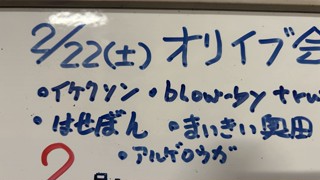 2/22(土) オリイブ会
・イケクソン ・blow-by trw
・はせぼん ・まいきい奥田
・アルゲロウガ
2